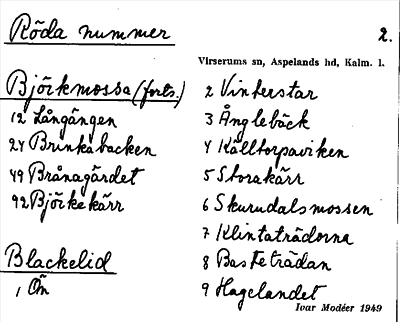 Röda nummer
2.
Virserums sn, Aspelands hd, Kalm. l.
Björkmossa (forts.)
12 Långängen
24 Brinkabacken
49 Brånagärdet
92 Björkekärr
Blackelid
1 Ön
2 Vinterstar
3 Ånglebäck
4 Källtorpaviken
5 Storakärr
6 Skurudalsmossen
7 Klinta­trädorna
8 Basteträdan
9 Hagelandet
Ivar Modéer 1949